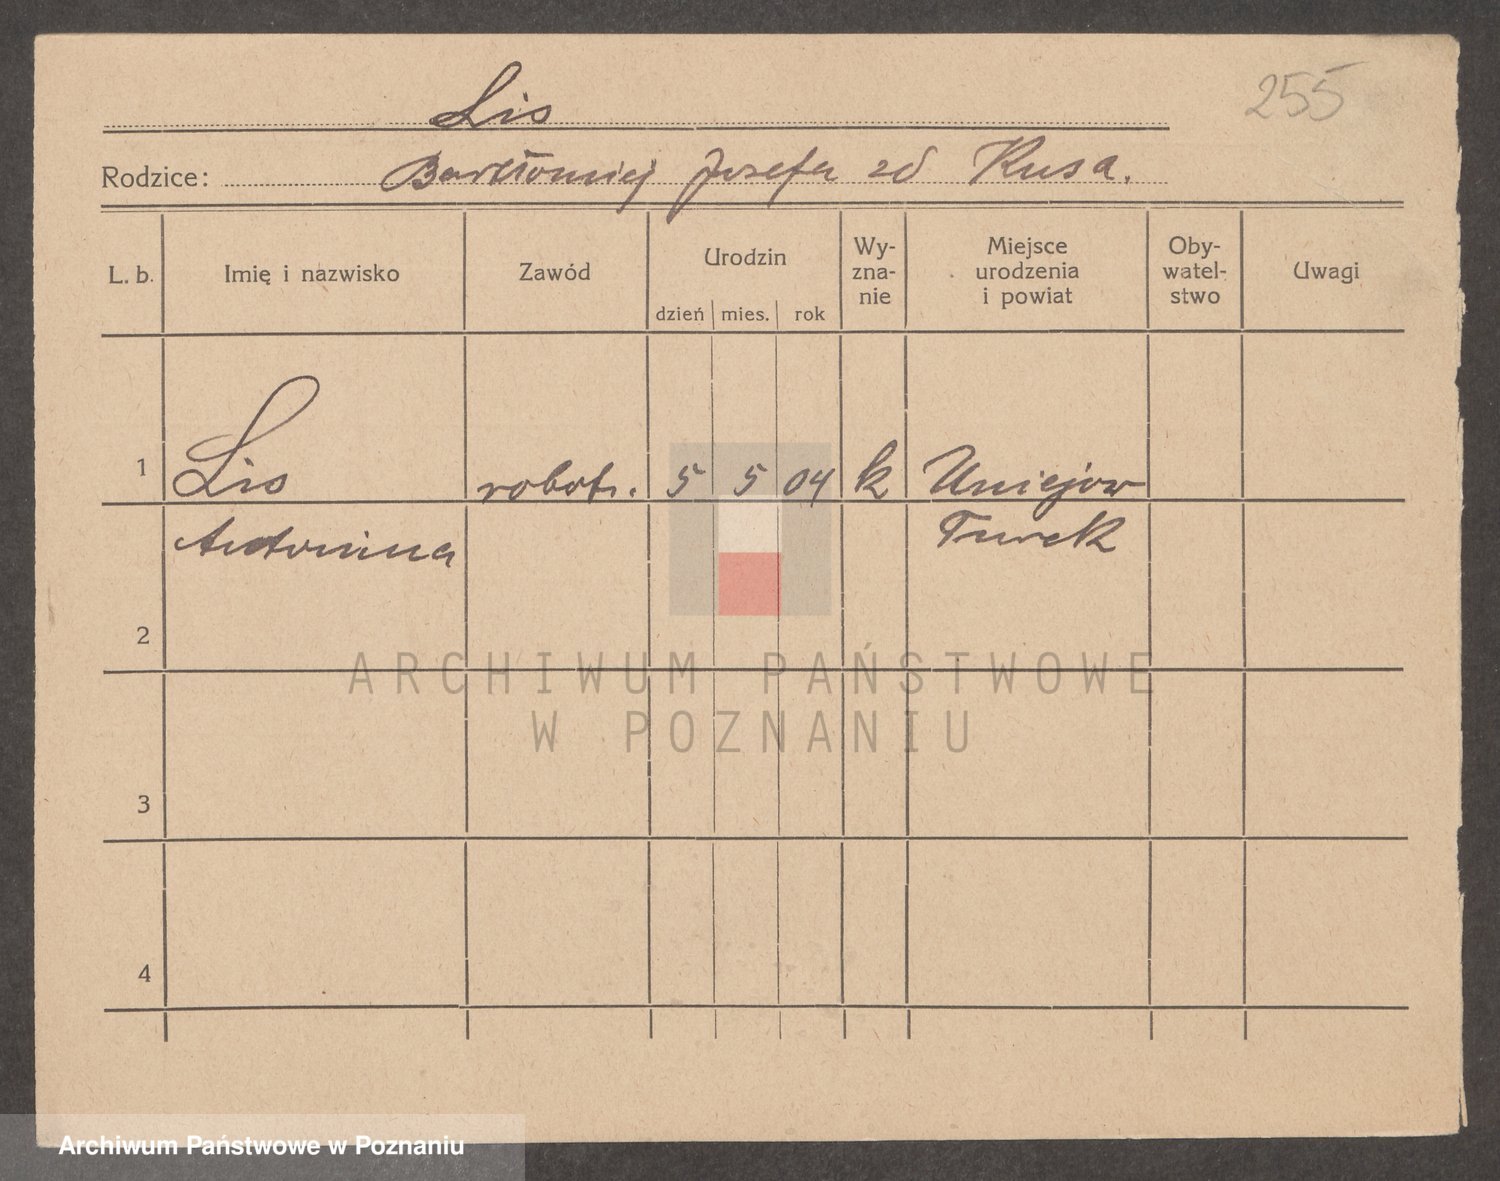 255
Lis
Rodzice: Bartłomiej Josefa zd Kusa.
L. b. Imię i nazwisko Zawód Urodzin dzień mies. rok Wy-zna-nie Miejsce urodzenia i powiat Oby-watel-stwo Uwagi
1 Lis robotn. 5 5 04 k Uniejow
Antonina Turek
2
3
4
ARCHIWUM PAŃSTWOWE
W POZNANIU
Archiwum Państwowe w Poznaniu